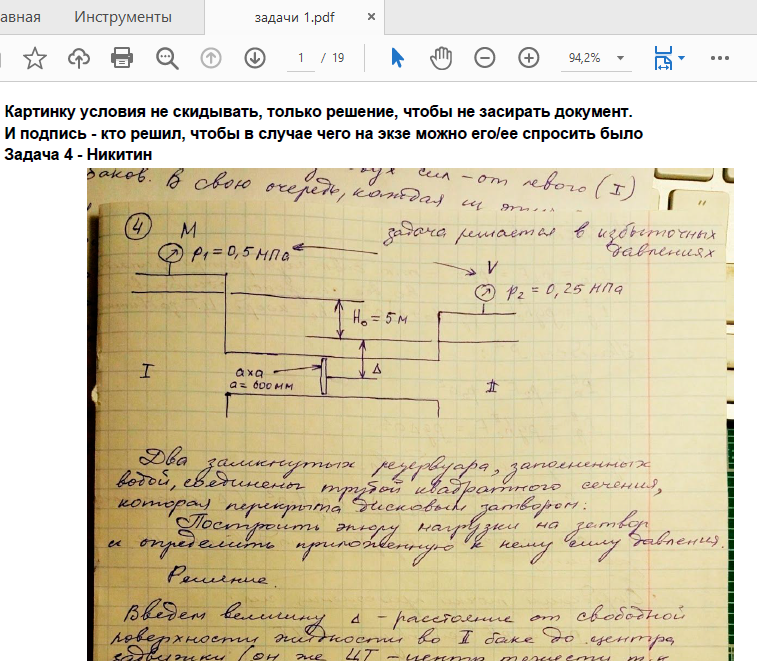 авная Инструменты задачи 1.pdf ×
1 / 19 94,2%
Картинку условия не скидывать, только решение, чтобы не засирать документ.
И подпись - кто решил, чтобы в случае чего на экзе можно его/ее спросить было
Задача 4 - Никитин
сил – от левого (I)
В свою очередь, каждая
4 М задача решается в избыточных
p₁ = 0,5 МПа давлениях
V
p₂ = 0,25 МПа
H₀ = 5 м
I аха Δ
a = 600 мм II
Два замкнутых резервуара, заполненных
водой, соединены трубой квадратного сечения,
которая перекрыта дисковым затвором.
Построить эпюру нагрузки на затвор
и определить приложенную к нему силу давления.
Решение.
Введем величину Δ – расстояние от свободной
поверхности жидкости во II баке до центра
задвижки (он же ЦТ – центр тяжести т.к.